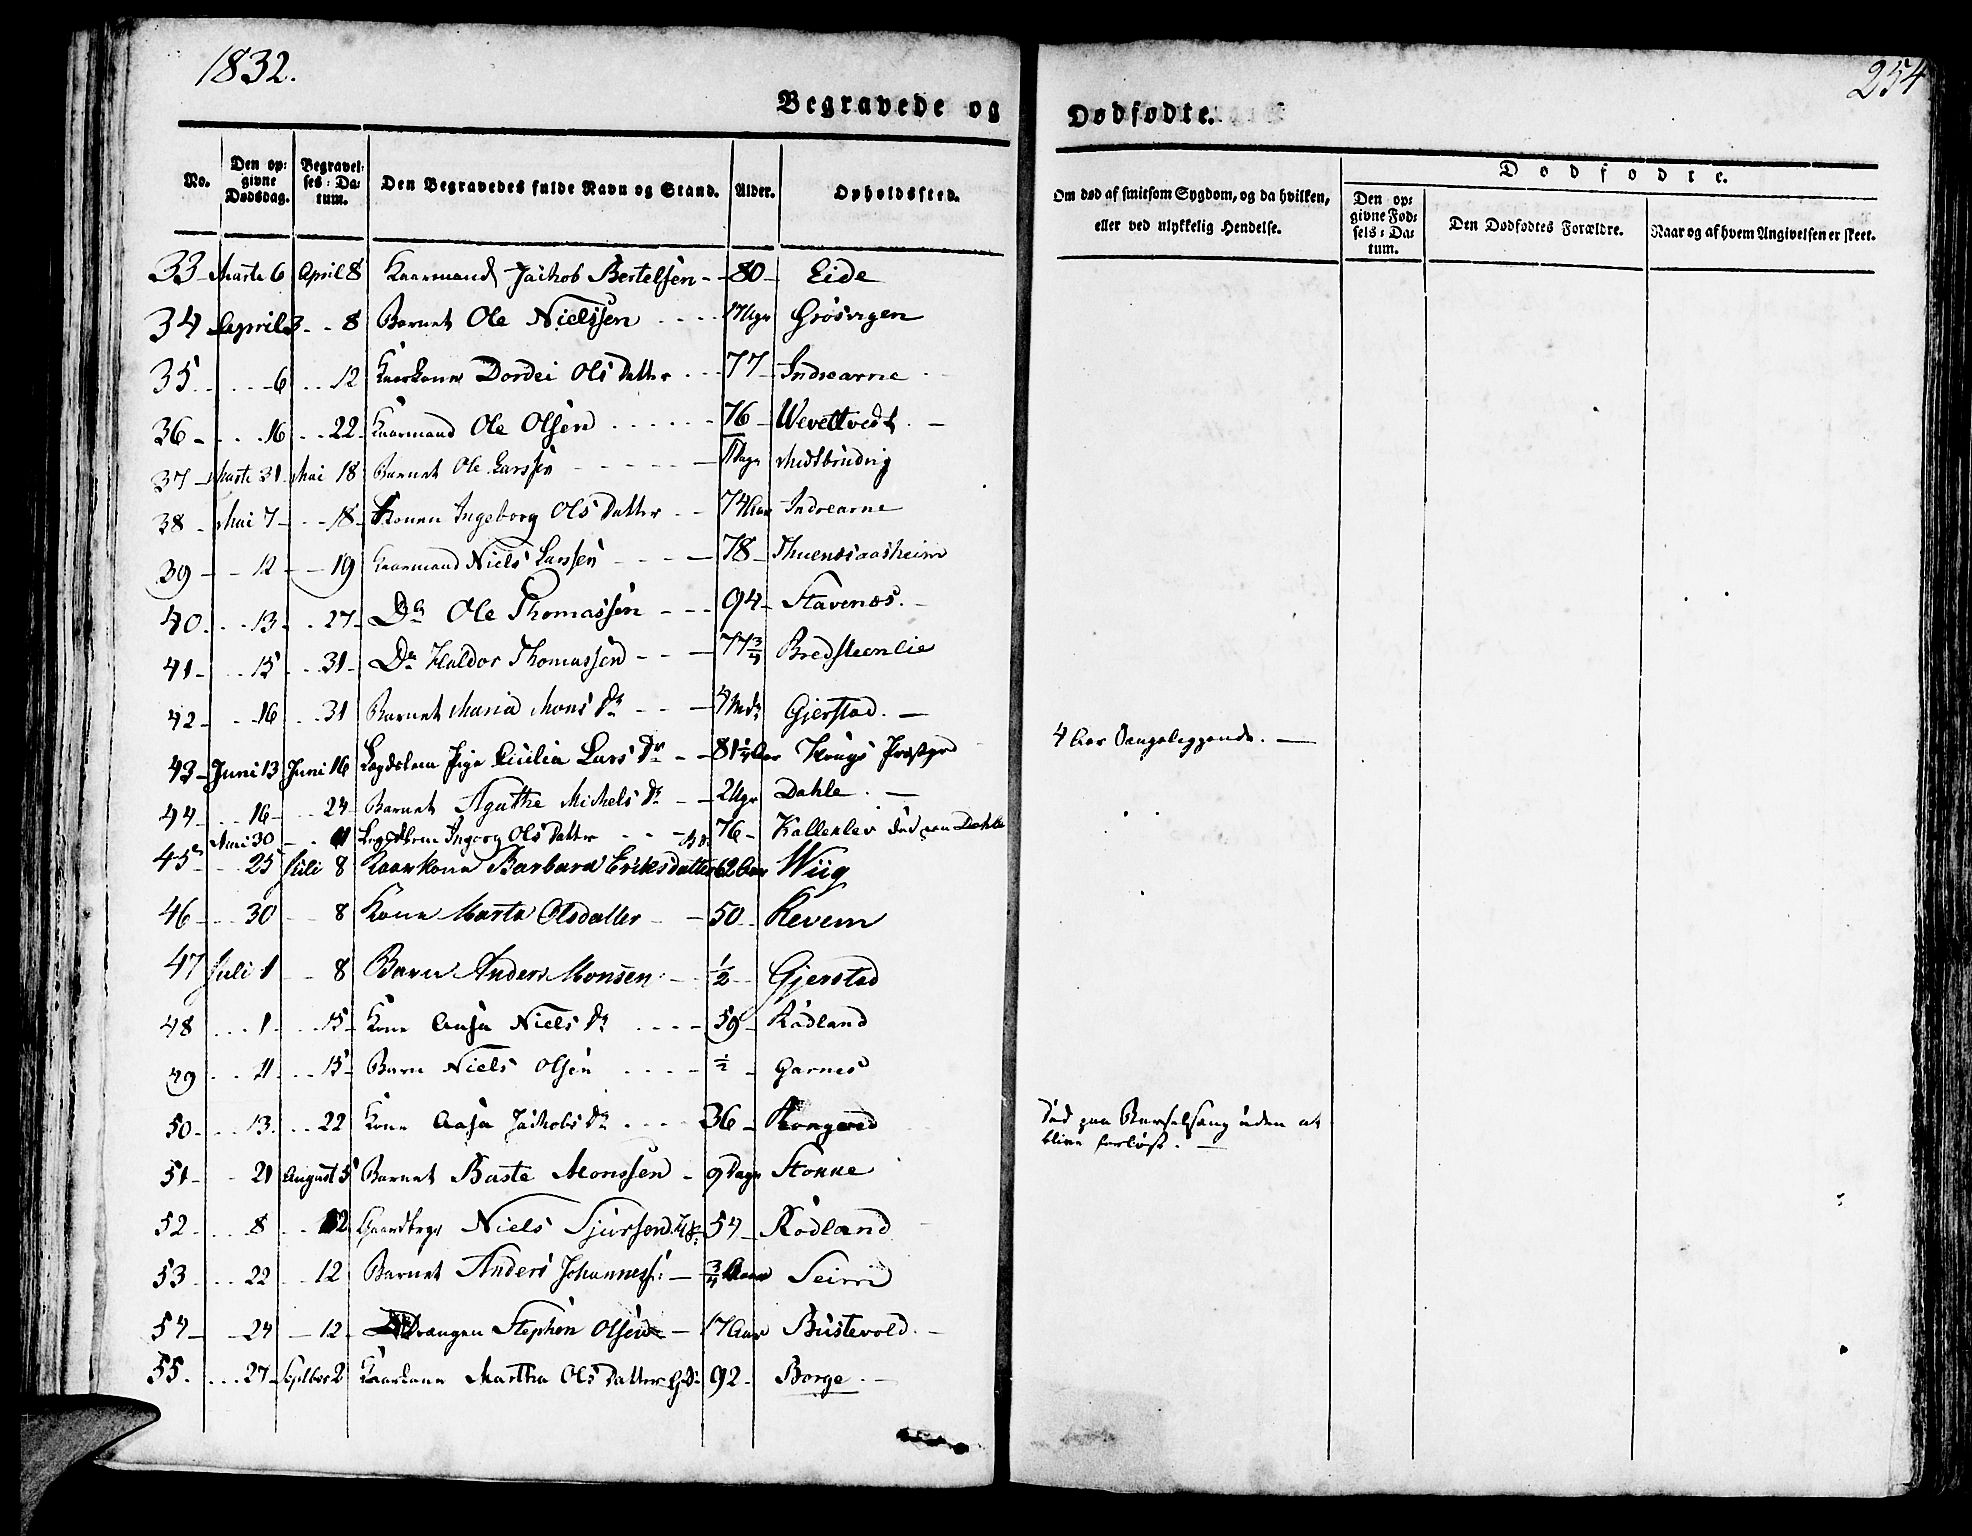 1832.
254
Begravede og Dødfødte.
No. Den opgivne Dødsdag. Begravelses-Datum. Den Begravedes fulde Navn og Stand. Alder. Opholdssted. Om død af smitsom Sygdom, og da hvilken, eller ved ulykkelig Hendelse. Dødfødte. Den opgivne Fødsels-Datum. Den Dødfødtes Forældre. Naar og af hvem Angivelsen er skeet.
33 Marts 6 April 8 Kaarmand Jackob Bertelsen 80 Eide
34 April 3 8 Barnet Ole Nielssen 17 Ugr Grösvigen
35 6 12 Kaarkone Dordei Ols Datter 77 Indrearne
36 16 22 Kaarmand Ole Olsen 76 Wevelthvedt
37 Marts 31 Mai 18 Barnet Ole Larssen Dage
38 Mai 7 18 Konen Ingeborg Ols Datter 74 Aar Indrearne
39 12 19 Kaarmand Niels Larssen 78 Thuenesaasheim
40 13 27 Do Ole Thomassen 94 Stavenes
41 15 31 Do Haldor Thomassen 77 3/4 Bredsteenlie
42 16 31 Barnet Maria Mons Dr 4 Mdr Gjerstad
43 Juni 13 Juni 16 Lægdslem Pige Cicilia Lars Dr 81 1/4 Aar Hougs Præstgrd 4 Aar Sengeliggende.
44 16 24 Barnet Agathe Michels Dr 2 Ugr Dahle
30 Ols Datter 76 Kalleklev död paa Dahle
45 25 Juli 8 Kaarkone Barbara Eriksdatter 62 Aar Wiig
46 30 8 Kone Marta Olsdatter 50 Revem
47 Juli 1 8 Barn Anders Monsen 1/2 Gjerstad
48 1 15 Kone Aasa Niels Dr 59 Rödland
49 11 15 Barn Niels Olsen 1/2 Garnes
50 13 22 Kone Aasa Jackobs Dr 36 Död paa Barselsæng uden at
blive forlöst.
51 21 August 5 Barnet Baste Monssen 9 Dage Stokke
52 8 12 Gaardbrgr Niels Sjursen 54 Rödland
53 22 12 Barnet Anders Johanness: 3/4 Aar Seim
54 24 12 Drængen Stephen Olsen 17 Aar Büstevold
55 27 Septbr 2 Kaarkone Martha Ols Datter 92 Borge